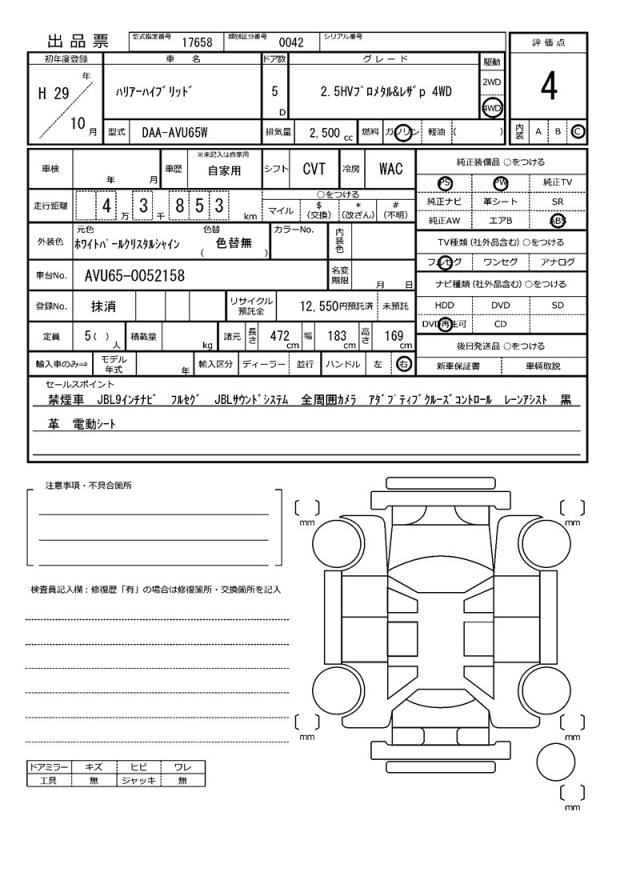 出品票 型式指定番号 17658 類別区分番号 0042 シリアル番号
初年度登録 車名 ドア数 グレード 駆動 評価点
H 29 年 10 月 ハリアーハイブリッド 5 D 2.5HVプロメタル&レザp 4WD 2WD 4WD 4
型式 DAA-AVU65W 排気量 2,500 cc 燃料 ガソリン 軽油 ( ) 内装 A B C
車検 年 月 車歴 ※未記入は自家用 自家用 シフト CVT 冷房 WAC 純正装備品 ○をつける
PS PW 純正TV
走行距離 4 万 3 千 8 5 3 km ○をつける マイル $ (交換) * (改ざん) # (不明) 純正ナビ 革シート SR
純正AW エアB ABS
外装色 元色 ホワイトパールクリスタルシャイン 色替 ( 色替無 ) カラーNo. 内装色 TV種類 (社外品含む) ○をつける
フルセグ ワンセグ アナログ
車台No. AVU65-0052158 名変期限 月 日 ナビ種類 (社外品含む) ○をつける
登録No. 抹消 リサイクル預託金 12,550円預託済 未預託 HDD DVD SD
DVD再生可 CD
定員 5( ) 人 積載量 kg 諸元 長さ 472 cm 幅 183 cm 高さ 169 cm 後日発送品 ○をつける
輸入車のみ⇒ モデル年式 年 輸入区分 ディーラー 並行 ハンドル 左 右 新車保証書 車輌取説
セールスポイント
禁煙車 JBL9インチナビ フルセグ JBLサウンドシステム 全周囲カメラ アダプティブクルーズコントロール レーンアシスト 黒
革 電動シート
注意事項・不具合箇所
mm mm
検査員記入欄：修復歴「有」の場合は修復箇所・交換箇所を記入
mm mm
ドアミラー キズ ヒビ ワレ
工具 無 ジャッキ 無
mm